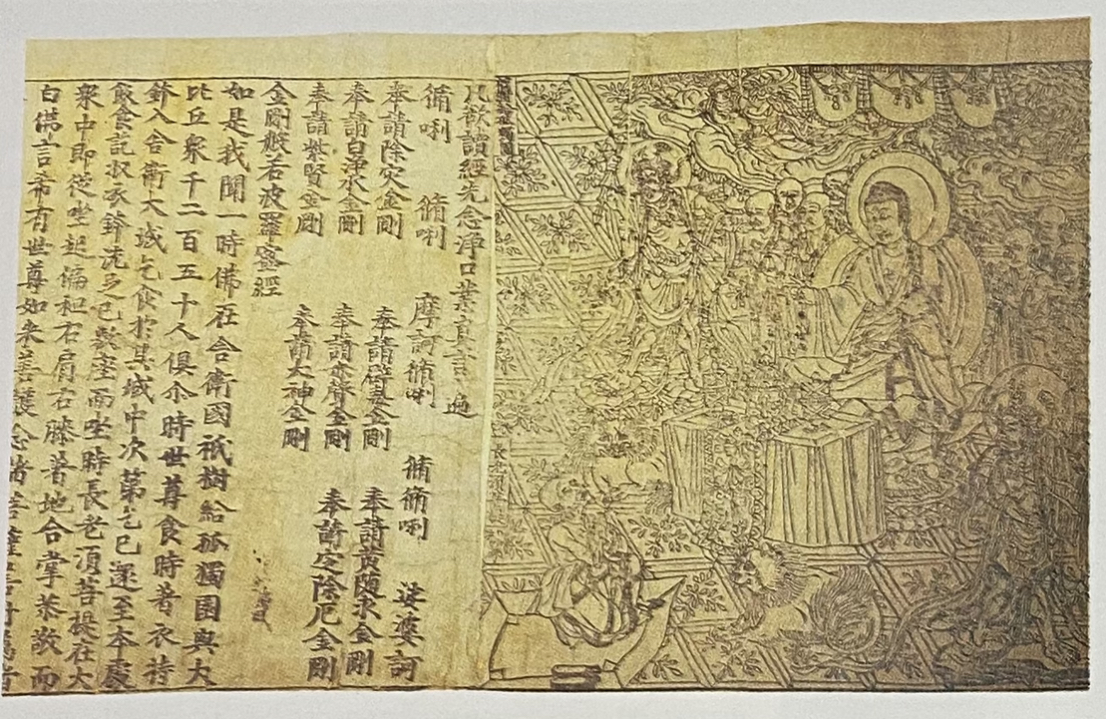 長老須菩提
凡欲讀經先念淨口業真言一遍
脩唎 脩唎 摩訶脩唎 脩脩唎 娑婆訶
奉請除灾金剛 奉請辟毒金剛 奉請黃随求金剛
奉請白淨水金剛 奉請赤聲金剛 奉請定除厄金剛
奉請紫賢金剛 奉請大神金剛
金剛般若波羅蜜經
如是我聞一時佛在舍衛國祇樹給孤獨園與大
比丘衆千二百五十人俱尒時世尊食時著衣持
鉢入舍衛大城乞食於其城中次第乞已還至本處
飯食訖收衣鉢洗足已敷座而坐時長老須菩提在大
衆中即從坐起偏袒右肩右膝著地合掌恭敬而
白佛言希有世尊如来善護念諸菩薩善付囑諸